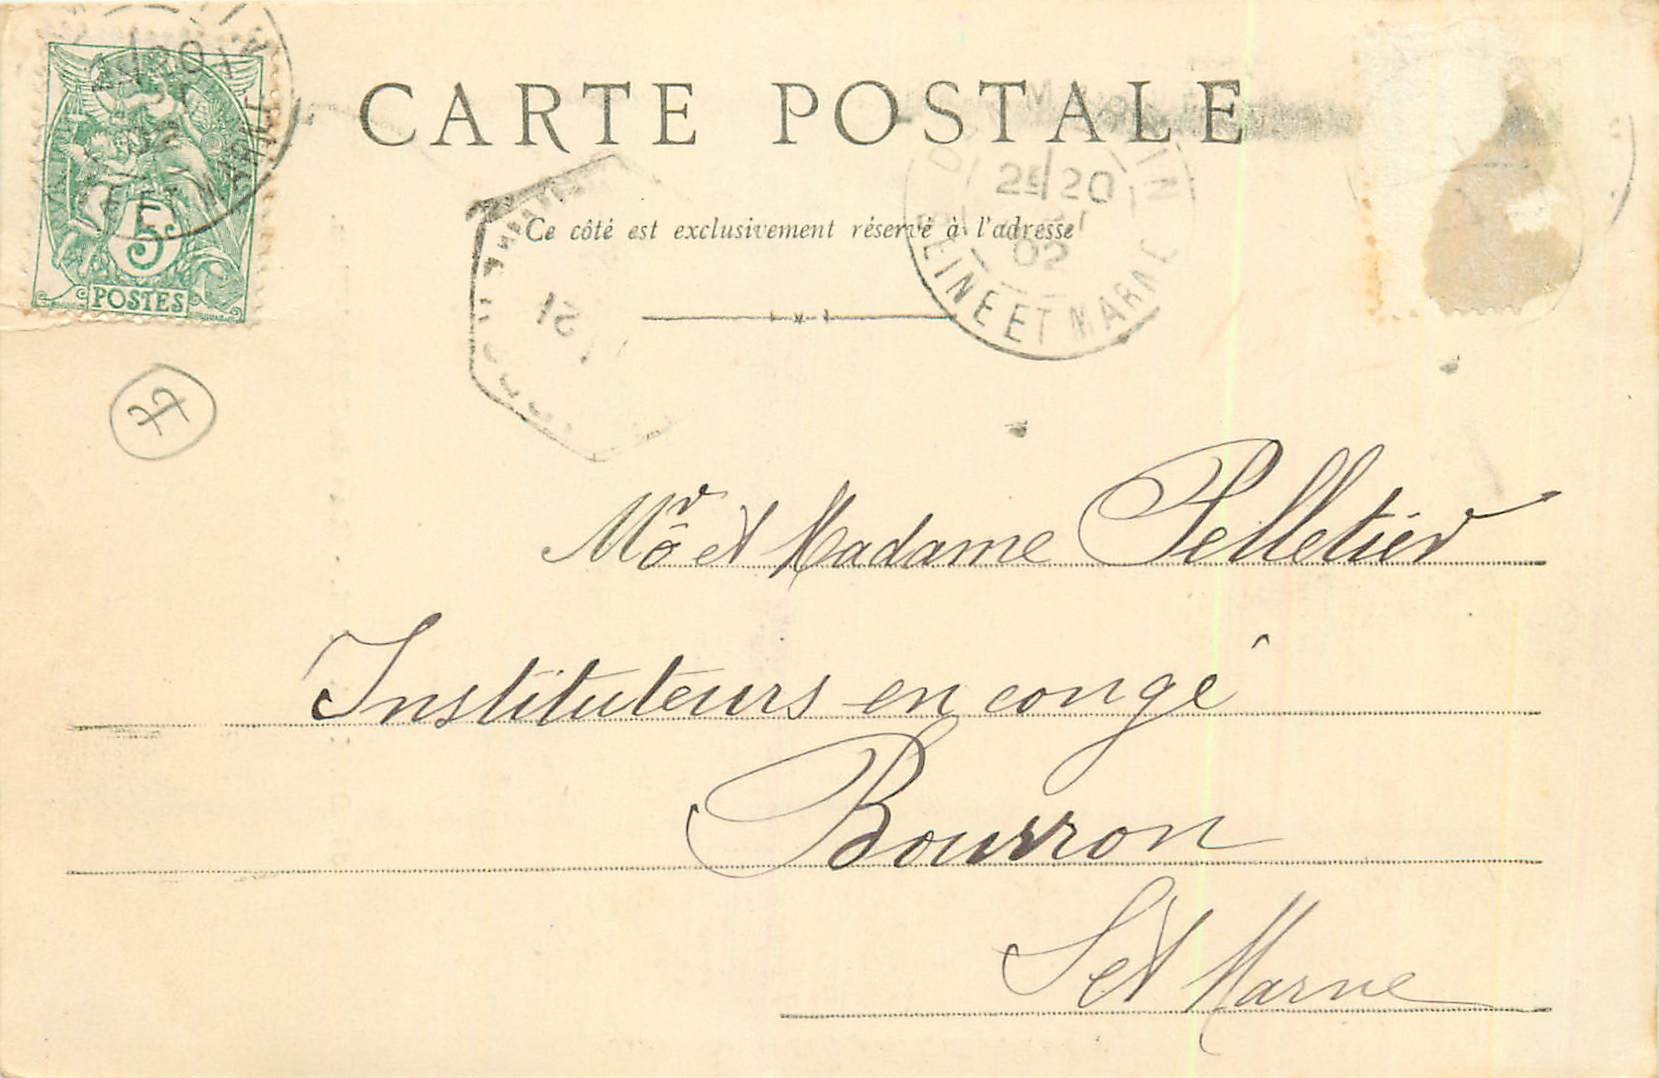 CARTE POSTALE
Ce côté est exclusivement réservé à l'adresse
5
POSTES
77
21
2E/20
02
SEINE ET MARNE
Mr et Madame Pelletier
Instituteurs en congé
Bourron
S et Marne